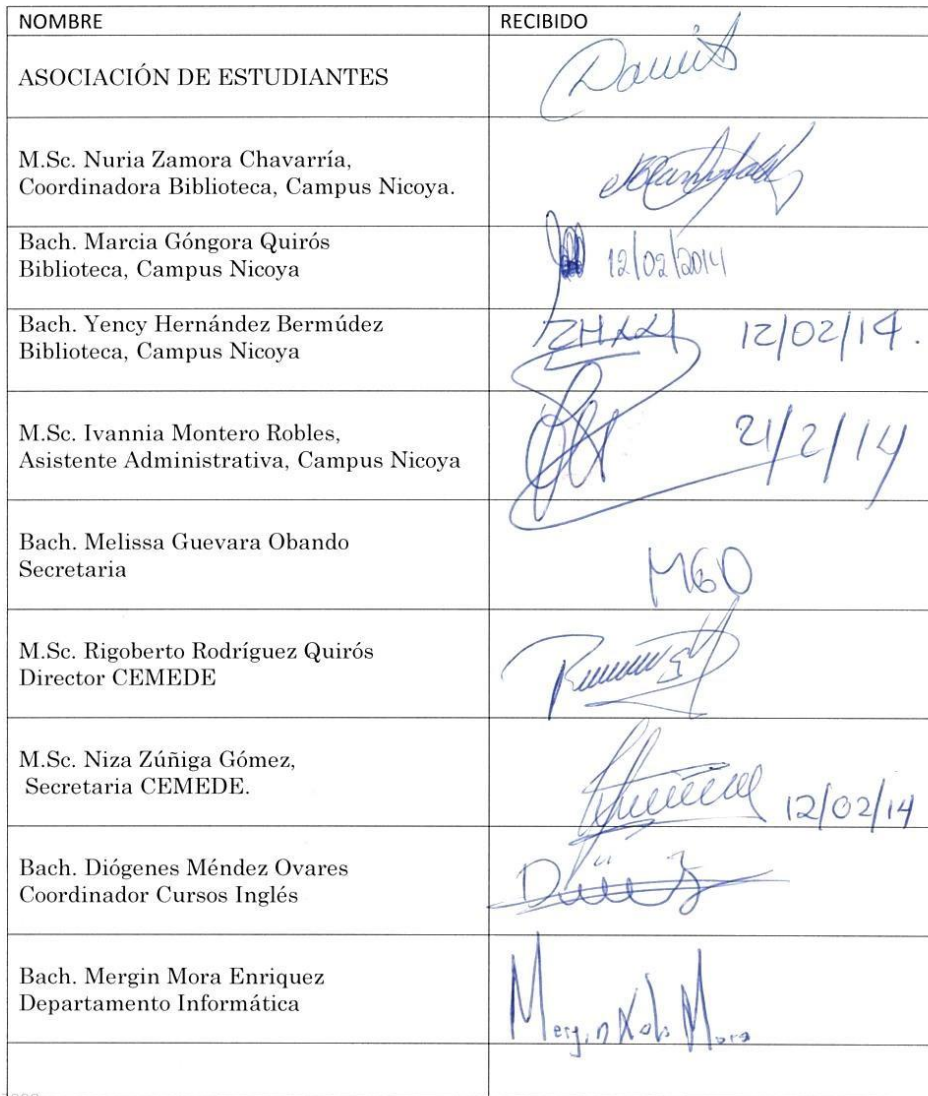 NOMBRE RECIBIDO
ASOCIACIÓN DE ESTUDIANTES
M.Sc. Nuria Zamora Chavarría,
Coordinadora Biblioteca, Campus Nicoya.
Bach. Marcia Góngora Quirós
Biblioteca, Campus Nicoya
12/02/2014
Bach. Yency Hernández Bermúdez
Biblioteca, Campus Nicoya
12/02/14.
M.Sc. Ivannia Montero Robles,
Asistente Administrativa, Campus Nicoya
21/2/14
Bach. Melissa Guevara Obando
Secretaria
MGO
M.Sc. Rigoberto Rodríguez Quirós
Director CEMEDE
M.Sc. Niza Zúñiga Gómez,
Secretaria CEMEDE.
12/02/14
Bach. Diógenes Méndez Ovares
Coordinador Cursos Inglés
Bach. Mergin Mora Enriquez
Departamento Informática
Mergin Mora